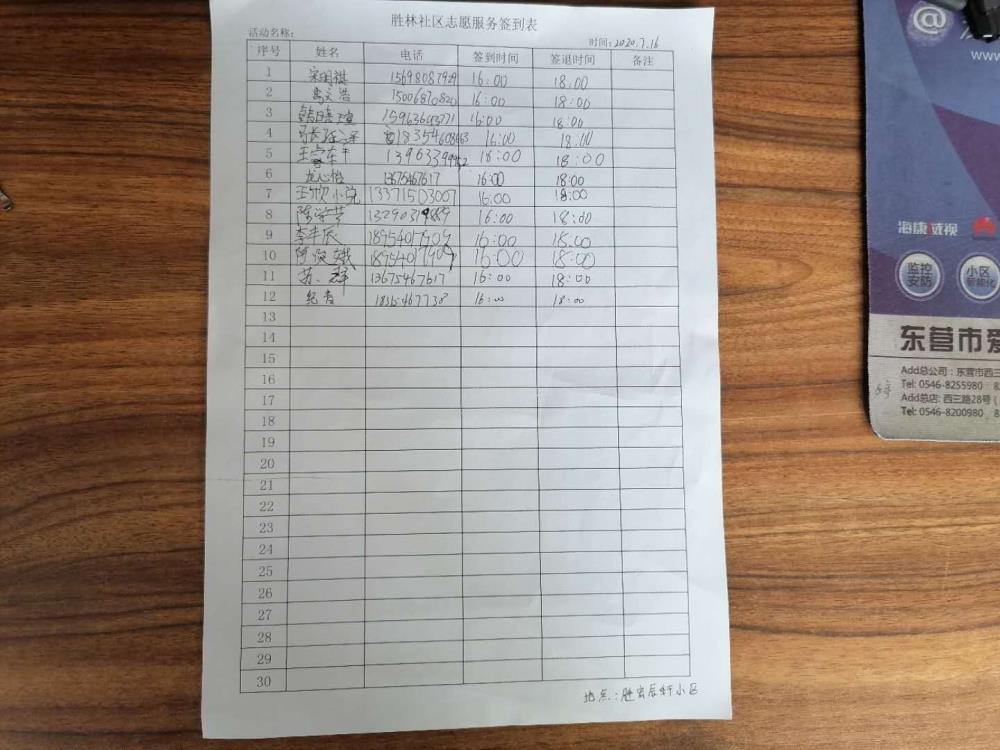 胜林社区志愿服务签到表
活动名称: 时间:2020.7.16
序号 姓名 电话 签到时间 签退时间 备注
1 宋明祺 15698087929 16:00 18:00
2 文浩 15006870820 16:00 18:00
3 韩晓瑄 15963693771 16:00 18:00
4 16:00 18:00
5 16:00 18:00
6 龙心怡 13675467617 16:00 18:00
7 王欣小兑 13371503007 16:00 18:00
8 16:00 18:00
9 李丰辰 18954017909 16:00 18:00
10 18954017909 16:00 18:00
11 苏群 13675467617 16:00 18:00
12 纪青 16:00 18:00
13
14
15
16
17
18
19
20
21
22
23
24
25
26
27
28
29
30
地点:胜宏辰轩小区
@
www
海康威视
监控安防
小区智能化
东营市爱
Add总公司:东营市西三
Tel: 0546-8255980 8
Add总店: 西三路28号(
Tel: 0546-8200980 8